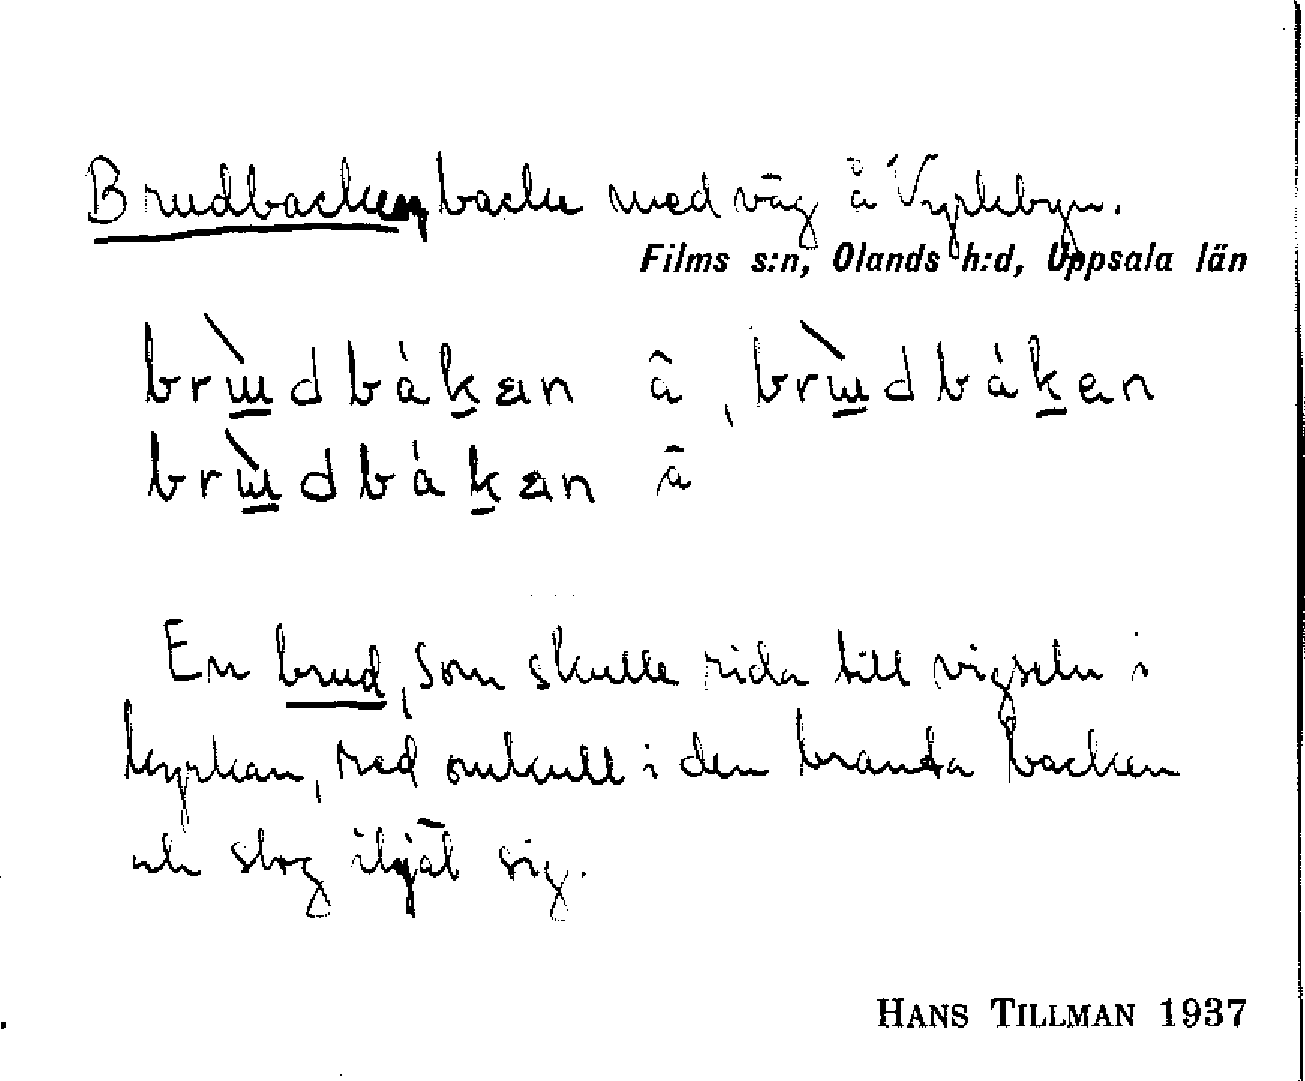 Brudbacken, backe med väg å Vyrkebyn.
Films s:n, Olands h:d, Uppsala län
brɯ̀dbákan â, brɯ̀dbákan
brɯ̀dbákan â
En brud, som skulle rida till vigseln i
kyrkan, red omkull i den branta backen
och slog ihjäl sig.
HANS TILLMAN 1937